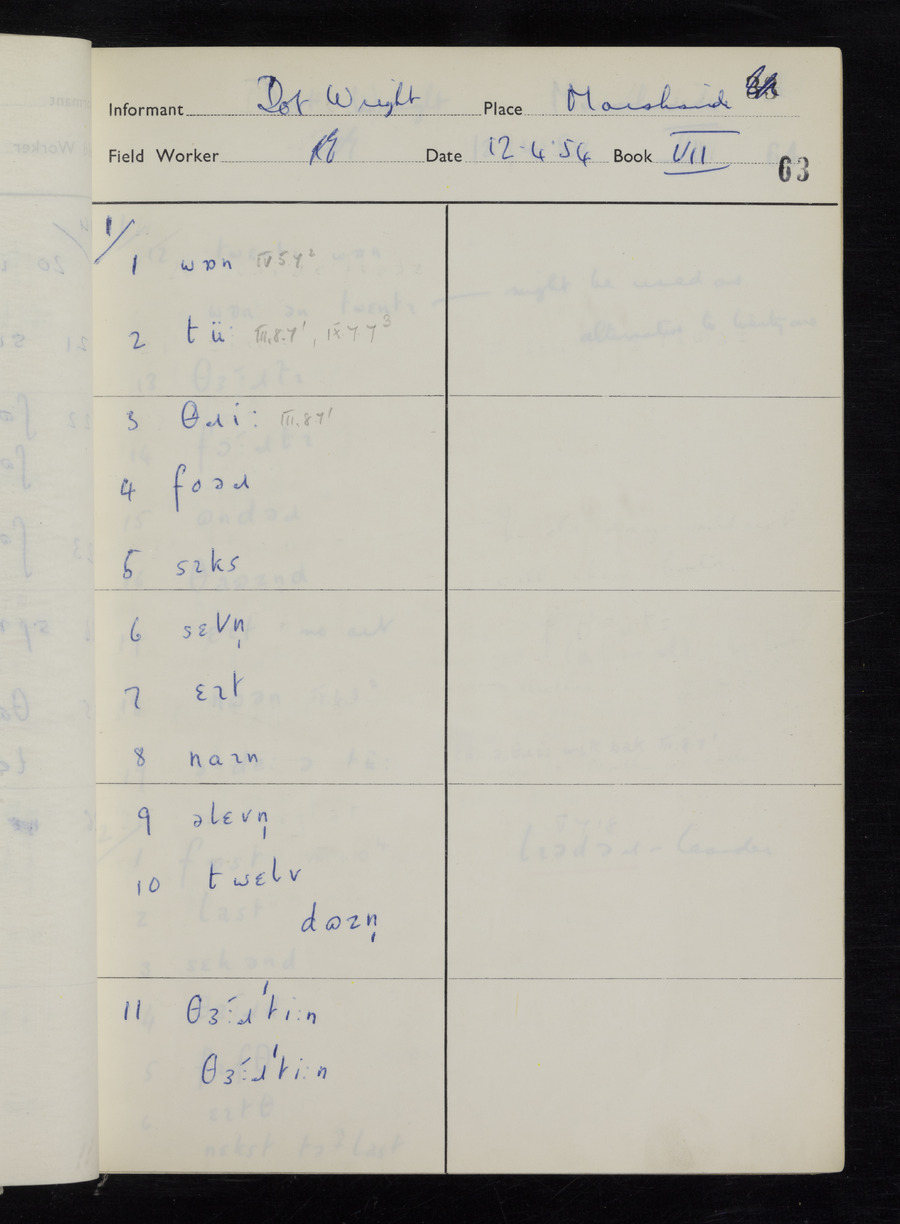 Informant Dot Wright Place Marshside
Field Worker Date 12.4.54 Book VII
63
1/
1 wɒn IV 5.7²
2 tüː III.8.7¹, IX.7.7³
3 θɹiː III.8.7¹
4 foəɹ
5 sɪks
6 sɛvn̩
7 ɛɪt
8 naɪn
9 əlɛvn̩
10 twɛlv
dɷzn̩
11 θɜ́ːɹˈtiːn
θɜ́ːɹˈtiːn